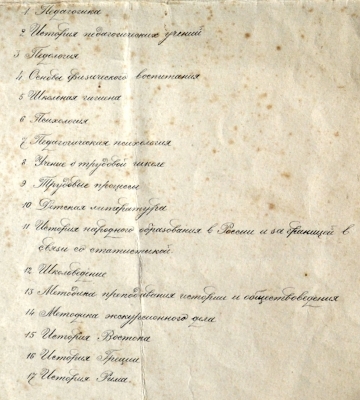 1 Педагогика
2 История педагогических учений
3 Педология
4 Основы физического воспитания
5 Школьная гигиена
6 Психология
7 Педагогическая психология
8 Учение о трудовой школе
9 Трудовые процессы
10 Детская литература
11 История народного образования в России и за границей в
связи со статистикой
12 Школоведение
13 Методика преподавания истории и обществоведения
14 Методика экскурсионного дела
15 История Востока
16 История Греции
17 История Рима